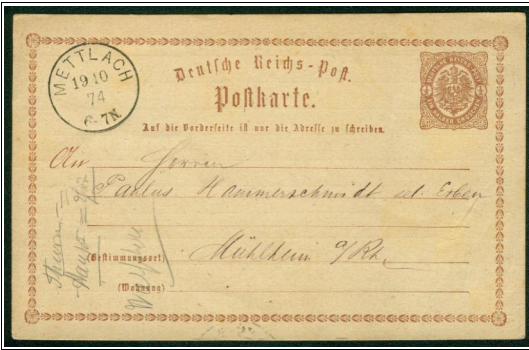 METTLACH
19 10
74
6-7N.
Deutsche Reichs-Post.
Postkarte.
Auf die Vorderseite ist nur die Adresse zu schreiben.
An Herren
Paulus Hammerschmidt sel. Erben
Mühlheim a/Rh.
(Bestimmungsort)
(Wohnung)